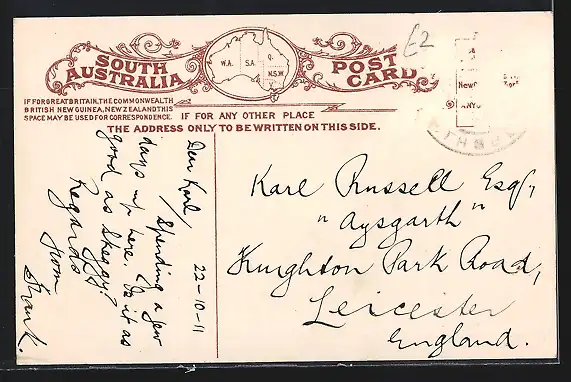 SOUTH AUSTRALIA
W.A. S.A. Q. N.S.W.
POST CARD.
£2
IF FOR GREAT BRITAIN, THE COMMONWEALTH
BRITISH NEW GUINEA, NEW ZEALAND THIS
SPACE MAY BE USED FOR CORRESPONDENCE.
IF FOR ANY OTHER PLACE
THE ADDRESS ONLY TO BE WRITTEN ON THIS SIDE.
22-10-11
Dear Karl,
Spending a few
days up here. Is it as
good as
Regards
from
Frank.
Karl Russell Esq,
"Aysgarth"
Knighton Park Road,
Leicester
England.